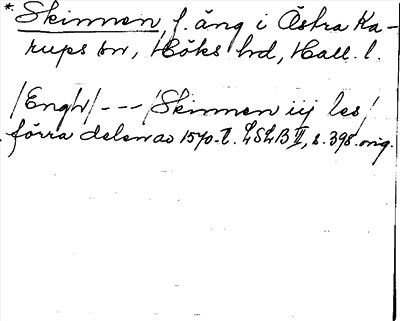 *Skinnen, f. äng i Östra Ka-
rups sn, Höks hd, Hall. l.
/Engh/ --- /Skinnen iij les/
förra delen av 1570-t. LSLB II, s. 398. orig.